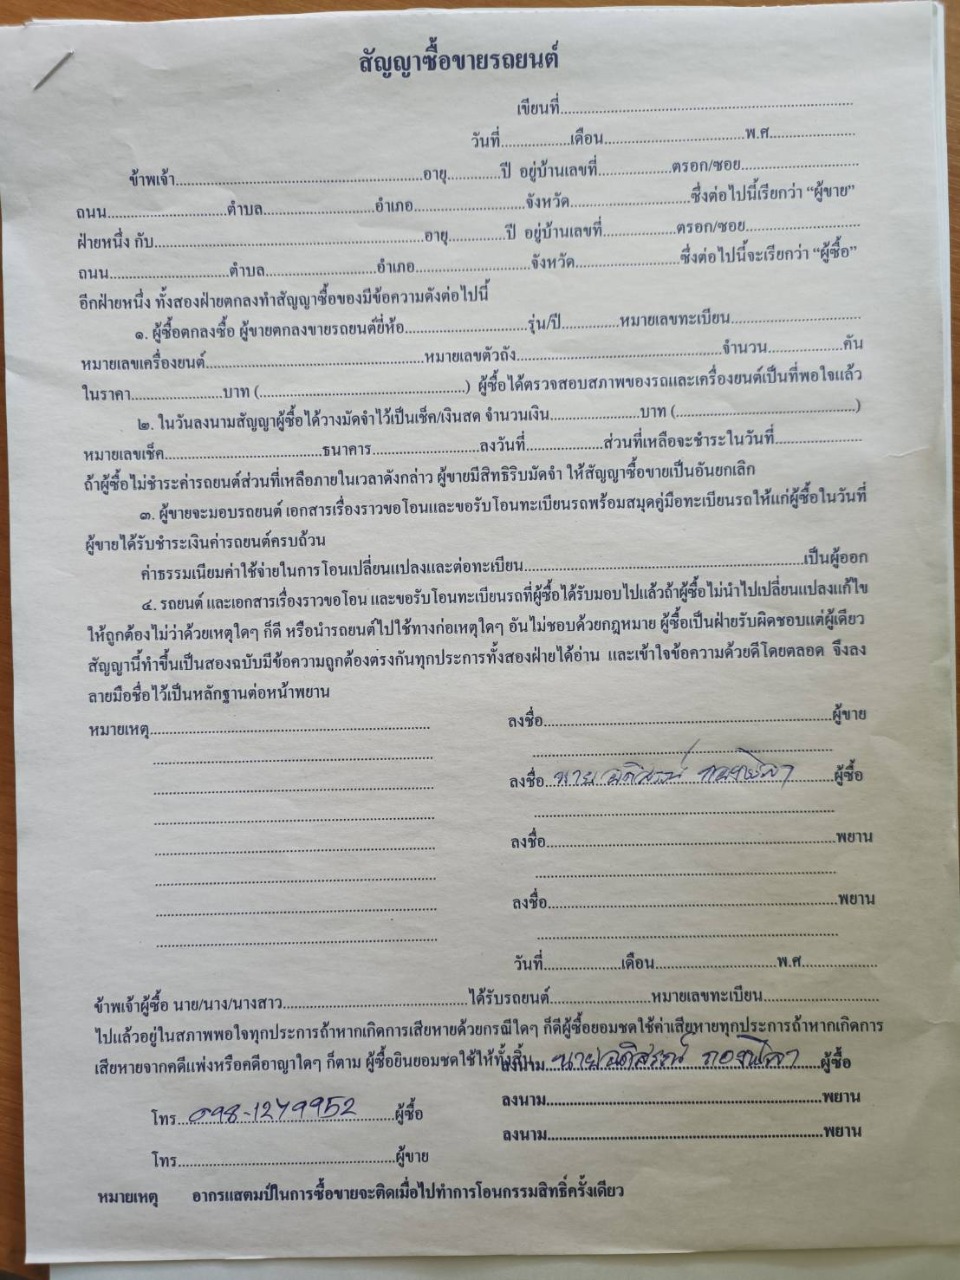 สัญญาซื้อขายรถยนต์
เขียนที่..............................
วันที่...............เดือน..............................พ.ศ....................
ข้าพเจ้า..............................อายุ............ปี อยู่บ้านเลขที่...............ตรอก/ซอย....................
ถนน....................ตำบล....................อำเภอ....................จังหวัด....................ซึ่งต่อไปนี้เรียกว่า “ผู้ขาย”
ฝ่ายหนึ่ง กับ..............................อายุ............ปี อยู่บ้านเลขที่...............ตรอก/ซอย....................
ถนน....................ตำบล....................อำเภอ....................จังหวัด....................ซึ่งต่อไปนี้จะเรียกว่า “ผู้ซื้อ”
อีกฝ่ายหนึ่ง ทั้งสองฝ่ายตกลงทำสัญญาซื้อของมีข้อความดังต่อไปนี้
๑. ผู้ซื้อตกลงซื้อ ผู้ขายตกลงขายรถยนต์ยี่ห้อ....................รุ่น/ปี............หมายเลขทะเบียน....................
หมายเลขเครื่องยนต์..............................หมายเลขตัวถัง..............................จำนวน...............คัน
ในราคา....................บาท (..............................) ผู้ซื้อได้ตรวจสอบสภาพของรถและเครื่องยนต์เป็นที่พอใจแล้ว
๒. ในวันลงนามสัญญาผู้ซื้อได้วางมัดจำไว้เป็นเช็ค/เงินสด จำนวนเงิน....................บาท (..............................)
หมายเลขเช็ค..............................ธนาคาร....................ลงวันที่...............ส่วนที่เหลือจะชำระในวันที่....................
ถ้าผู้ซื้อไม่ชำระค่ารถยนต์ส่วนที่เหลือภายในเวลาดังกล่าว ผู้ขายมีสิทธิริบมัดจำ ให้สัญญาซื้อขายเป็นอันยกเลิก
๓. ผู้ขายจะมอบรถยนต์ เอกสารเรื่องราวขอโอนและขอรับโอนทะเบียนรถพร้อมสมุดคู่มือทะเบียนรถให้แก่ผู้ซื้อในวันที่
ผู้ขายได้รับชำระเงินค่ารถยนต์ครบถ้วน
ค่าธรรมเนียมค่าใช้จ่ายในการโอนเปลี่ยนแปลงและต่อทะเบียน..............................เป็นผู้ออก
๔. รถยนต์ และเอกสารเรื่องราวขอโอน และขอรับโอนทะเบียนรถที่ผู้ซื้อได้รับมอบไปแล้วถ้าผู้ซื้อไม่นำไปเปลี่ยนแปลงแก้ไข
ให้ถูกต้องไม่ว่าด้วยเหตุใดๆ ก็ดี หรือนำรถยนต์ไปใช้ทางก่อเหตุใดๆ อันไม่ชอบด้วยกฎหมาย ผู้ซื้อเป็นฝ่ายรับผิดชอบแต่ผู้เดียว
สัญญานี้ทำขึ้นเป็นสองฉบับมีข้อความถูกต้องตรงกันทุกประการทั้งสองฝ่ายได้อ่าน และเข้าใจข้อความด้วยดีโดยตลอด จึงลง
ลายมือชื่อไว้เป็นหลักฐานต่อหน้าพยาน
หมายเหตุ..............................
ลงชื่อ..............................ผู้ขาย
ลงชื่อ นาย อดิสรณ์ ผู้ซื้อ
ลงชื่อ..............................พยาน
ลงชื่อ..............................พยาน
วันที่...............เดือน....................พ.ศ...............
ข้าพเจ้าผู้ซื้อ นาย/นาง/นางสาว..............................ได้รับรถยนต์....................หมายเลขทะเบียน....................
ไปแล้วอยู่ในสภาพพอใจทุกประการถ้าหากเกิดการเสียหายด้วยกรณีใดๆ ก็ดีผู้ซื้อยอมชดใช้ค่าเสียหายทุกประการถ้าหากเกิดการ
เสียหายจากคดีแพ่งหรือคดีอาญาใดๆ ก็ตาม ผู้ซื้อยินยอมชดใช้ให้ทั้งสิ้น
ลงนาม นาย อดิสรณ์ ผู้ซื้อ
โทร 098-1279952 ผู้ซื้อ
ลงนาม..............................พยาน
ลงนาม..............................พยาน
โทร..............................ผู้ขาย
หมายเหตุ อากรแสตมป์ในการซื้อขายจะติดเมื่อไปทำการโอนกรรมสิทธิ์ครั้งเดียว